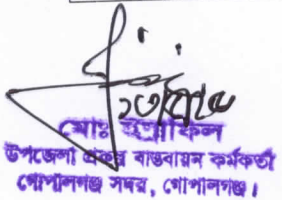 মোঃ
উপজেলা প্রকল্প বাস্তবায়ন কর্মকর্তা
গোপালগঞ্জ সদর, গোপালগঞ্জ।